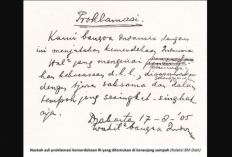 Proklamasi.
Kami bangsa Indonesia dengan ini menjatakan kemerdekaan Indonesia
Hal² jang mengenai pemindahan kekoeasaan d.l.l., diselenggarakan
dengan tjara saksama dan dalam
tempoh jang sesingkat-singkat
nja.
Djakarta 17-8-'05
Wakil² bangsa Indon
Naskah asli proklamasi kemerdekaan RI yang ditemukan di keranjang sampah (Koleksi BM Diah)